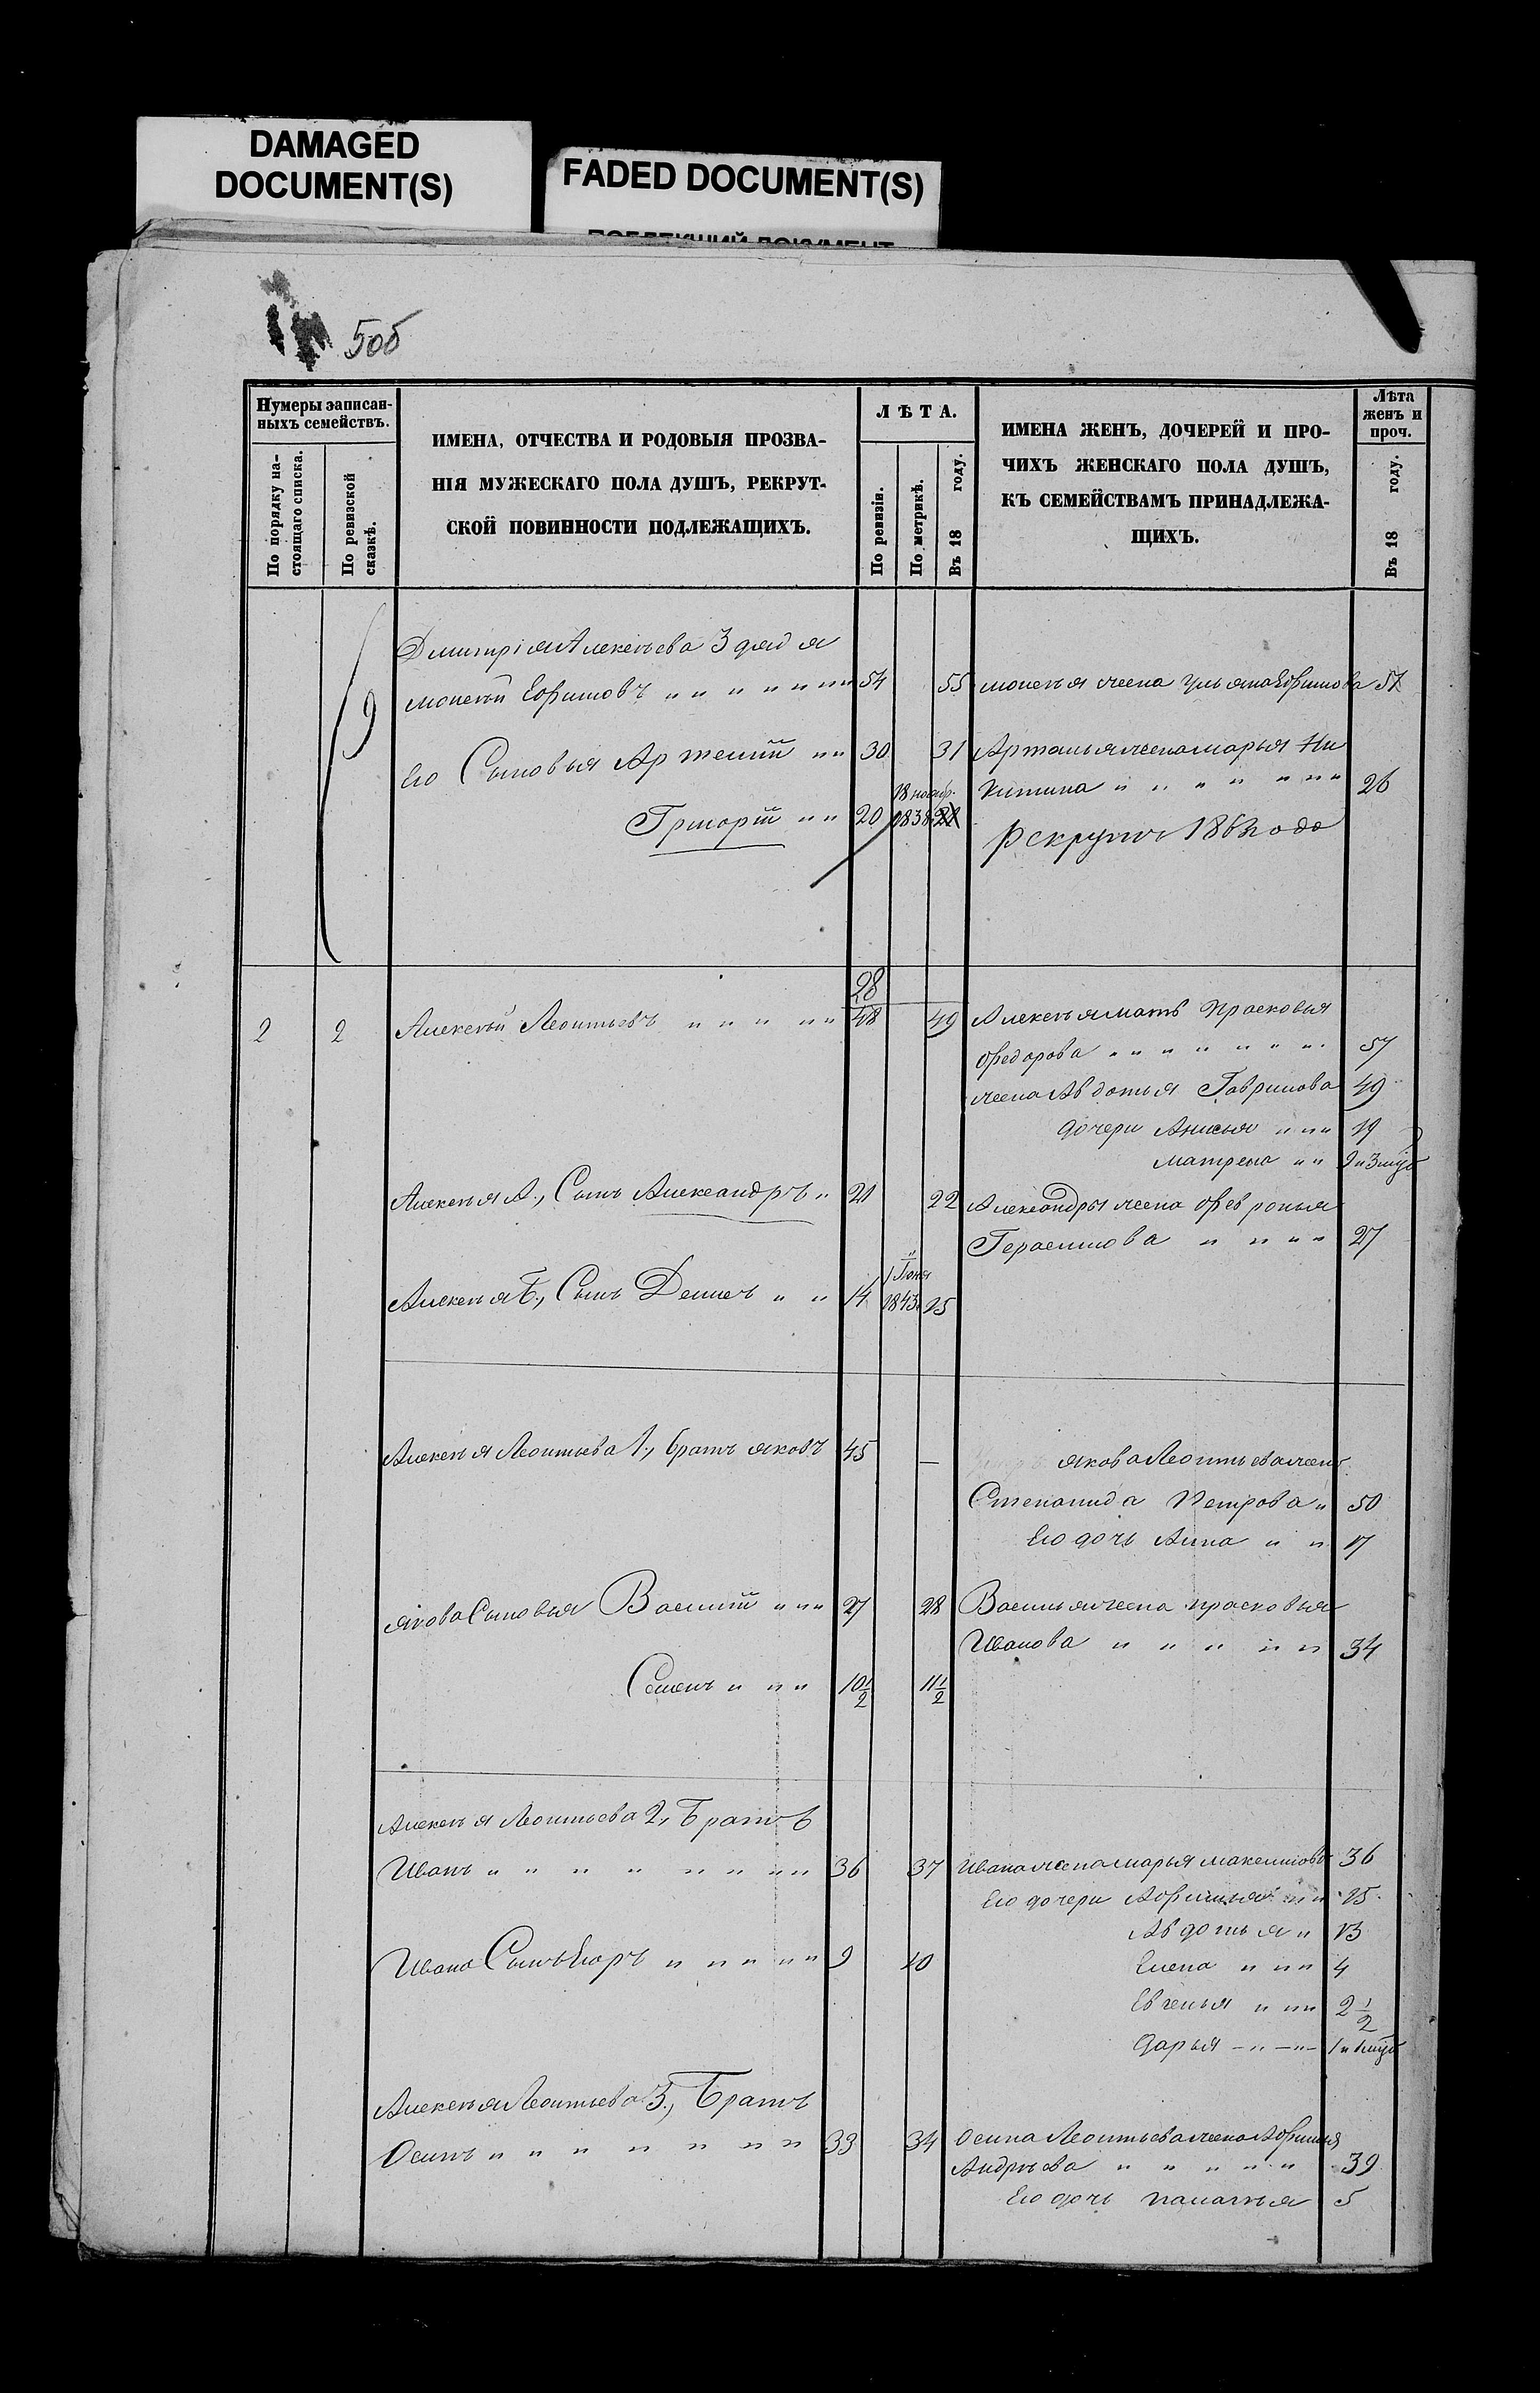 DAMAGED
DOCUMENT(S)
FADED DOCUMENT(S)
506
Нумеры записан-
ныхъ семействъ.
По порядку на-
стоящаго списка.
По ревизской
сказкѣ.
ИМЕНА, ОТЧЕСТВА И РОДОВЫЯ ПРОЗВА-
НІЯ МУЖЕСКАГО ПОЛА ДУШЪ, РЕКРУТ-
СКОЙ ПОВИННОСТИ ПОДЛЕЖАЩИХЪ.
ЛѢТА.
По ревизіи.
По метрикѣ.
Въ 18 году.
ИМЕНА ЖЕНЪ, ДОЧЕРЕЙ И ПРО-
ЧИХЪ ЖЕНСКАГО ПОЛА ДУШЪ,
КЪ СЕМЕЙСТВАМЪ ПРИНАДЛЕЖА-
ЩИХЪ.
Лѣта
женъ и
проч.
Въ 18 году.
Дмитрія Алексѣева 3 дядя
Ефимовъ " " " " " " " 54 55 жена Ульяна Ефимова 57
Его Сыновья Артемій " " 30 31 Артемья жена Марья Ни
китина " " " " " " " 26
18 ноябр.
Григорій " " 20 1838
рекрутъ
28
2 2 Алексѣй Леонтьевъ " " " " " 48 49 Алексѣя мать Прасковья
Федорова " " " " " " " " 57
жена Авдотья Гаврилова 49
дочери Анисья " " " 19
Матрена " "
Алексѣя А., Сынъ Александръ " 21 22 Александры жена Февронья
Герасимова " " " " 27
1 Іюня
Алексѣя Б., Сынъ " " 14 1843 15
Алексѣя Леонтьева 1., братъ Яковъ 45 — Якова Леонтьева жена
Степанида Петрова " 50
Его дочь Анна " " 17
Якова Сыновья Василій " " " 27 28 Василья жена Прасковья
Иванова " " " " " 34
Семенъ " " " 10 1/2 11 1/2
Алексѣя Леонтьева 2., Братъ
Иванъ " " " " " " " " 36 37 Ивана жена Марья Максимова 36
Его дочери Афимья " " 15
Авдотья " 13
Ивана Сынъ Егоръ " " " " " 9 10 Елена " " " 4
Евгенья " " " 2 1/2
Дарья — " — " —
Алексѣя Леонтьева 3., Братъ
Осипъ " " " " " " " 33 34 Осипа Леонтьева жена Афимья
Андрѣева " " " " " 39
Его дочь Палагѣя 5